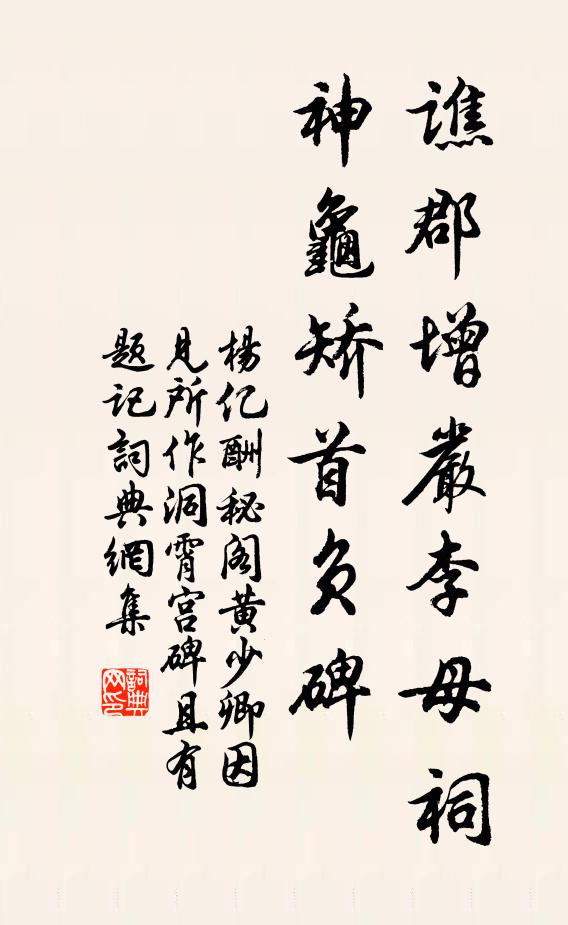 譙郡增嚴李母祠
神龜矯首負碑
楊亿酬秘阁黄少卿因
見所作洞霄宫碑且有
题记詞典網集
詞典网印